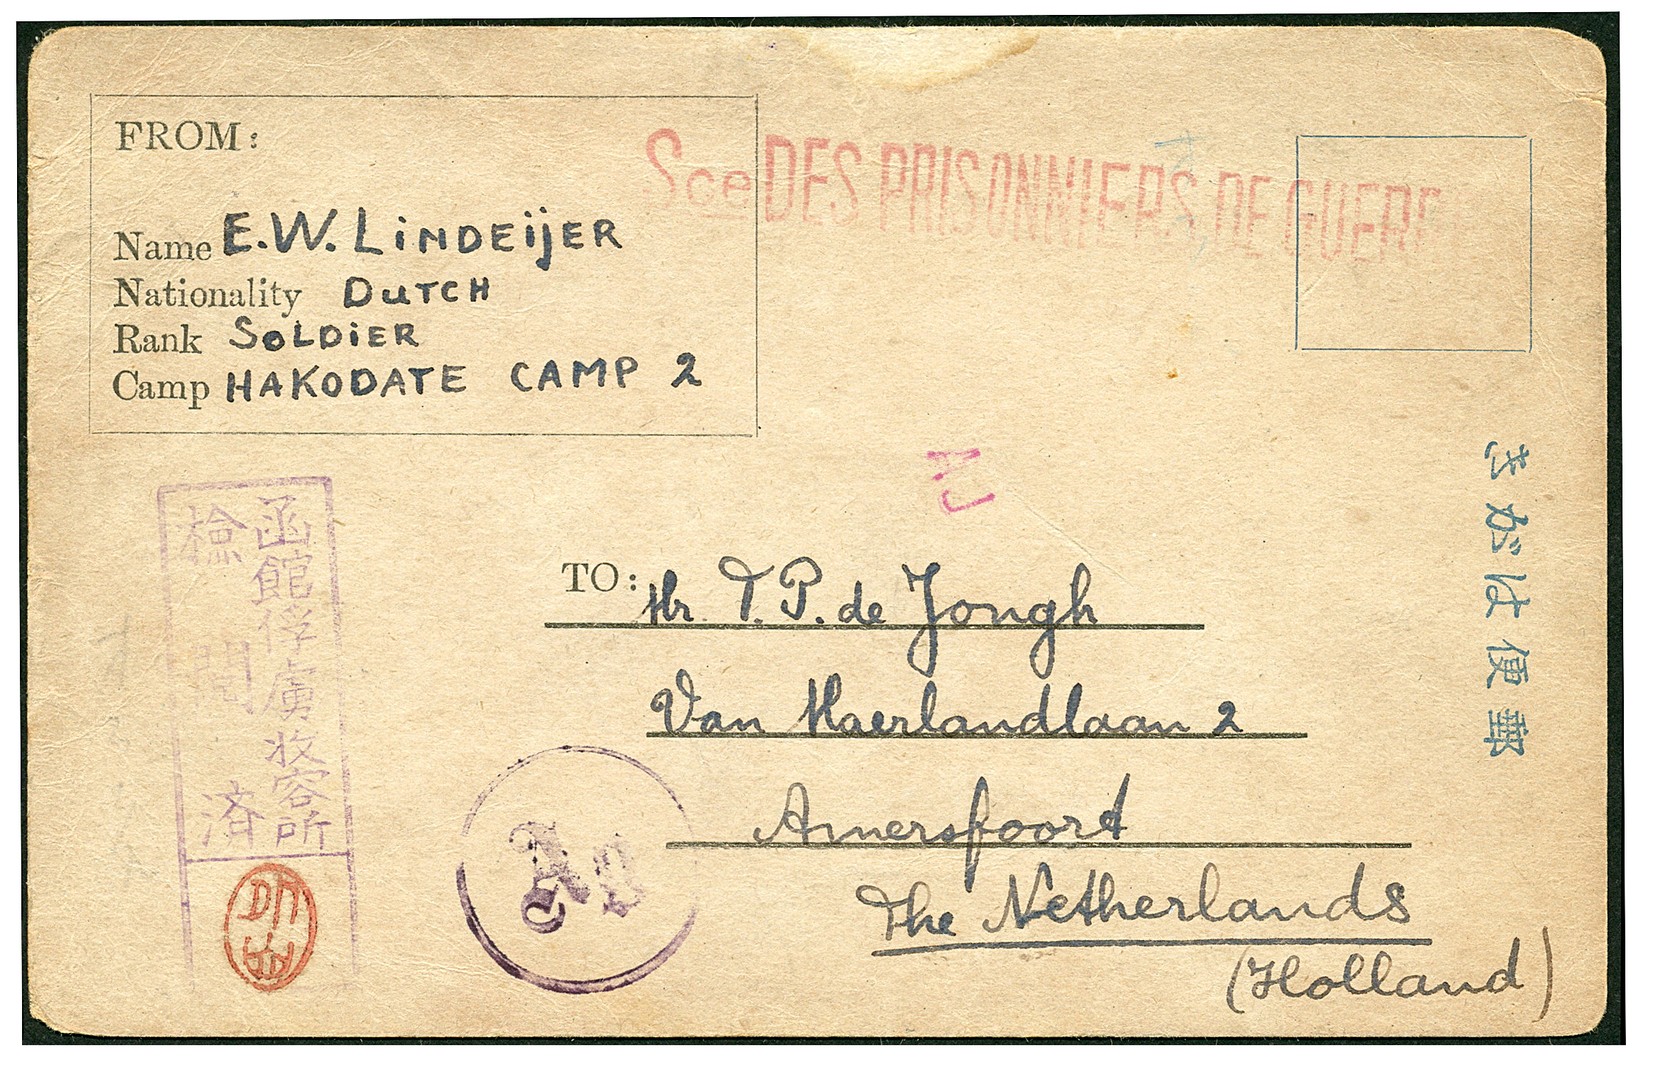 FROM:
Sce DES PRISONNIERS DE GUERR
Name E.W. LiNDEijER
Nationality DUTCH
Rank SOLDiER
Camp HAKODATE CAMP 2
AJ
郵便はがき
函館俘虜收容所
検閲済
TO: Hr. T. P. de Jongh
Van Haerlandlaan 2
Amersfoort
The Netherlands
(Holland)